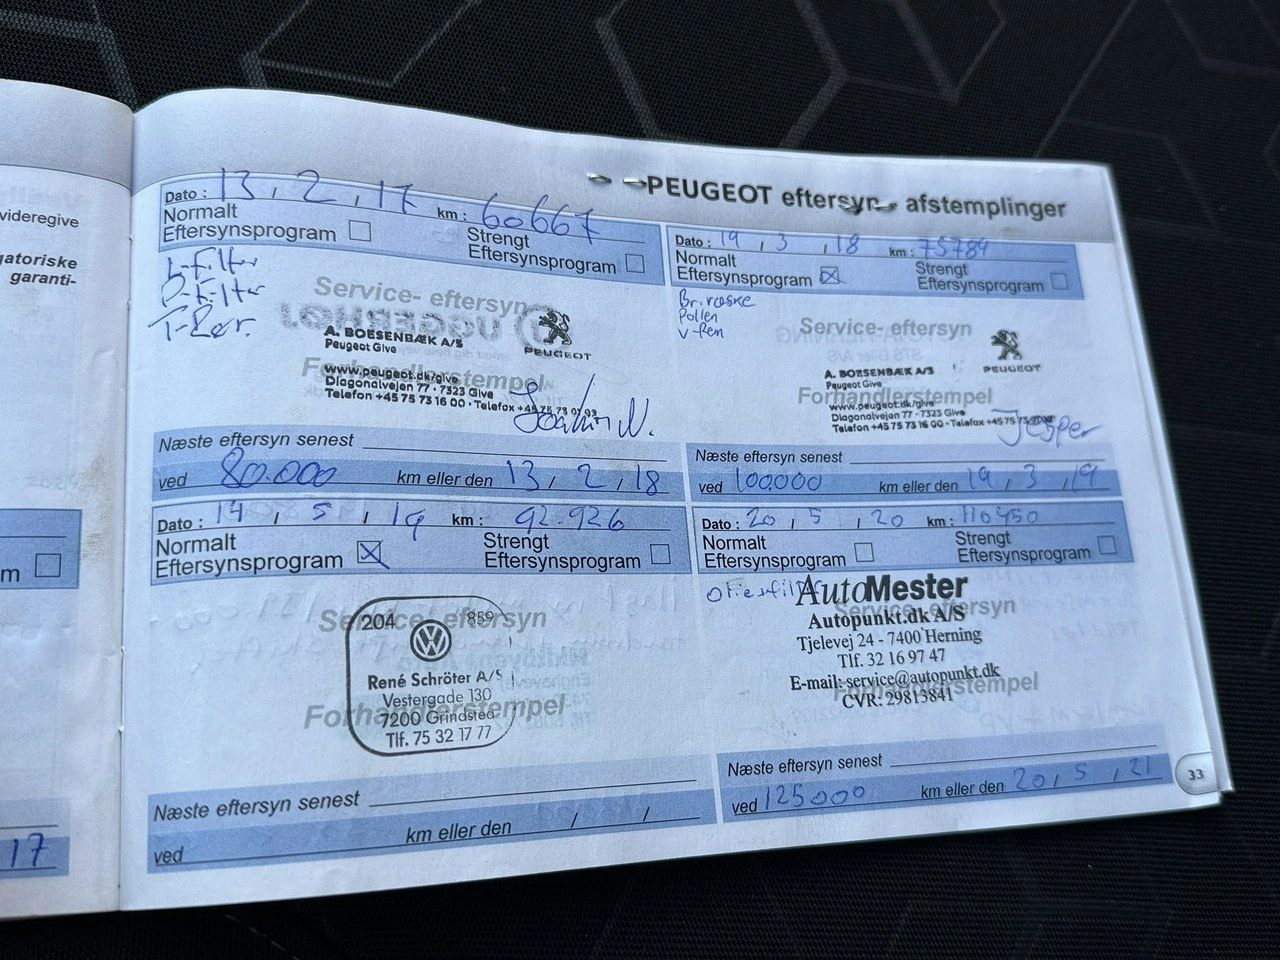 videregive
gatoriske
garanti-
m
17
PEUGEOT eftersyn - afstemplinger
Dato : 13 , 2 , 17 km : 60667
Normalt
Eftersynsprogram
Strengt
Eftersynsprogram
L-Filter
O-Filter
Service- eftersyn
A. BOESENBÆK A/S
Peugeot Give
PEUGEOT
Forhandlerstempel
www.peugeot.dk/give
Diagonalvejen 77 · 7323 Give
Telefon +45 75 73 16 00 · Telefax +45 75 73
Joakim N.
Næste eftersyn senest
ved 80.000 km eller den 13 , 2 , 18
Dato : 19 , 3 , 18 km : 75789
Normalt
Eftersynsprogram
Strengt
Eftersynsprogram
Br.væske
Pollen
Service- eftersyn
A. BOESENBÆK A/S
Peugeot Give
PEUGEOT
Forhandlerstempel
www.peugeot.dk/give
Diagonalvejen 77 · 7323 Give
Telefon +45 75 73 16 00 · Telefax +45 75 73
Jesper
Næste eftersyn senest
ved 100000 km eller den 19 , 3 , 19
Dato : 14 , 5 , 19 km : 92.926
Normalt
Eftersynsprogram
Strengt
Eftersynsprogram
Service- eftersyn
204 859
René Schröter A/S
Vestergade 130
Forhandlerstempel
7200 Grindsted
Tlf. 75 32 17 77
Næste eftersyn senest
ved km eller den / /
Dato : 20 , 5 , 20 km : 110450
Normalt
Eftersynsprogram
Strengt
Eftersynsprogram
AutoMester
Service- eftersyn
Autopunkt.dk A/S
Tjelevej 24 - 7400 Herning
Tlf. 32 16 97 47
E-mail: service@autopunkt.dk
Forhandlerstempel
CVR: 29813841
Næste eftersyn senest
ved 125000 km eller den 20 , 5 , 21
33